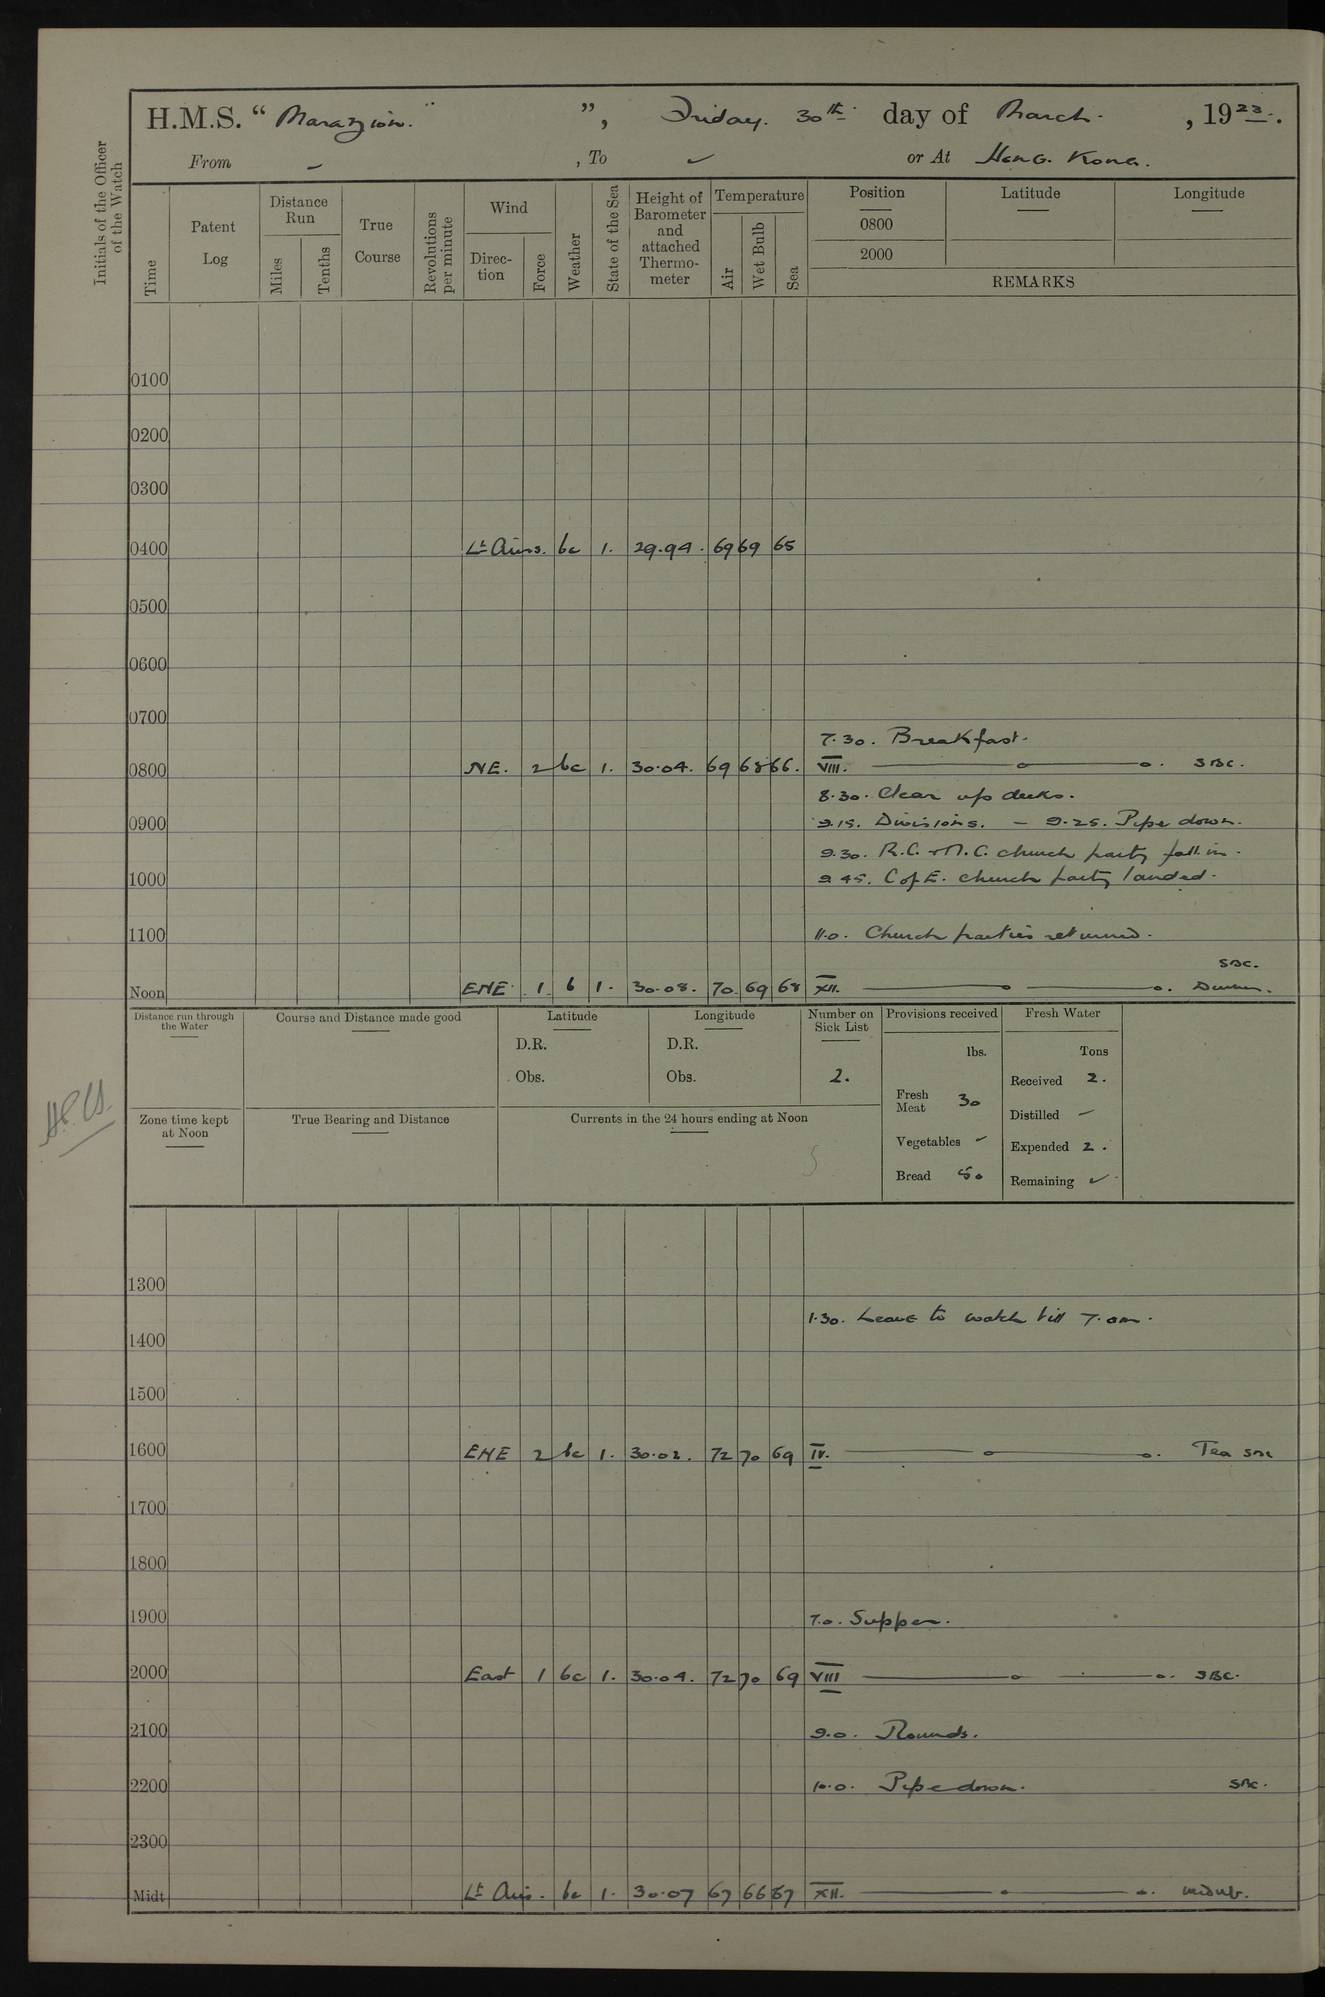 H.M.S. “ Marazion. ”, Friday. 30th day of March. , 1923.
From – , To ✓ or At Hong. Kong.
Initials of the Officer of the Watch
Time
Patent Log
Distance Run
Miles
Tenths
True Course
Revolutions per minute
Wind
Direc-tion
Force
Weather
State of the Sea
Height of Barometer and attached Thermo-meter
Temperature
Air
Wet Bulb
Sea
Position
Latitude
Longitude
0800
2000
REMARKS
0100
0200
0300
0400 Lt Airs. bc 1. 29.94. 69 69 65
0500
0600
0700
7.30. Breakfast.
0800 NE. 2 bc 1. 30.04. 69 68 66. VIII. SBC.
8.30. Clear up decks.
0900 9.15. Divisions. – 9.25. Pipe down.
9.30. R.C. + N.C. church party fall in.
1000 9.45. C of E. church party landed.
1100 11.0. Church parties returned.
SBC.
Noon ENE. 1. b 1. 30.08. 70. 69 68 XII. Dinner.
Distance run through the Water
Course and Distance made good
Latitude
D.R.
Obs.
Longitude
D.R.
Obs.
Number on Sick List
2.
Provisions received
lbs.
Fresh Meat 30
Vegetables –
Bread 50
Fresh Water
Tons
Received 2.
Distilled –
Expended 2.
Remaining ✓
Zone time kept at Noon
True Bearing and Distance
Currents in the 24 hours ending at Noon
1300
1.30. Leave to watch till 7. am.
1400
1500
1600 ENE 2 bc 1. 30.02. 72 70 69 IV. Tea SBC
1700
1800
1900 7.0. Supper.
2000 East 1 bc 1. 30.04. 72 70 69 VIII SBC.
2100 9.0. Rounds.
2200 10.0. Pipe down. SBC.
2300
Midt Lt Airs. bc 1. 30.07 67 66 67 XII.